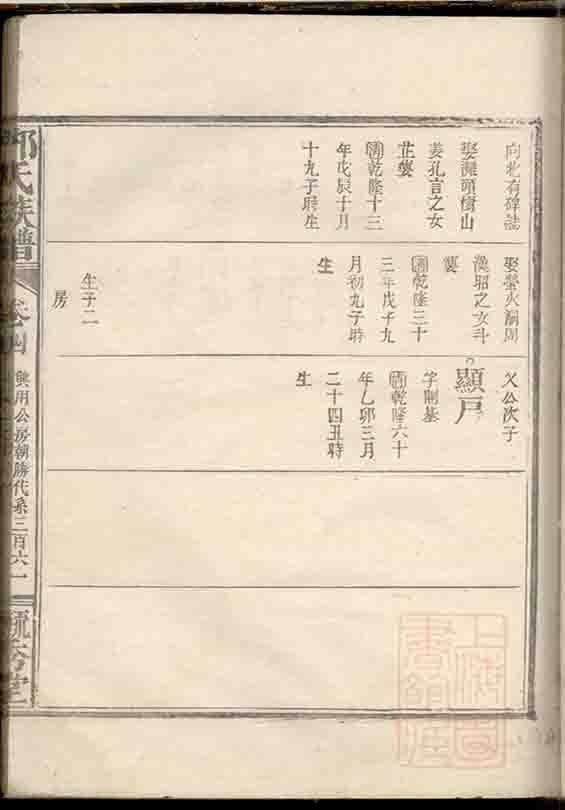 向北有碑誌
娶灘頭樹山
姜孔言之女
芷婆
清乾隆十三
年戊辰十月
十九子時生
娶螢火
漢昭之女斗
婆
清乾隆三十
三年戊子九
月初九子時
生
生子二
房
文公次子
顯戶
字制基
清乾隆六十
年乙卯三月
二十四丑時
生
氏族譜
卷四
用公房朝勝代系三百六一
毓秀堂
上海圖書館藏